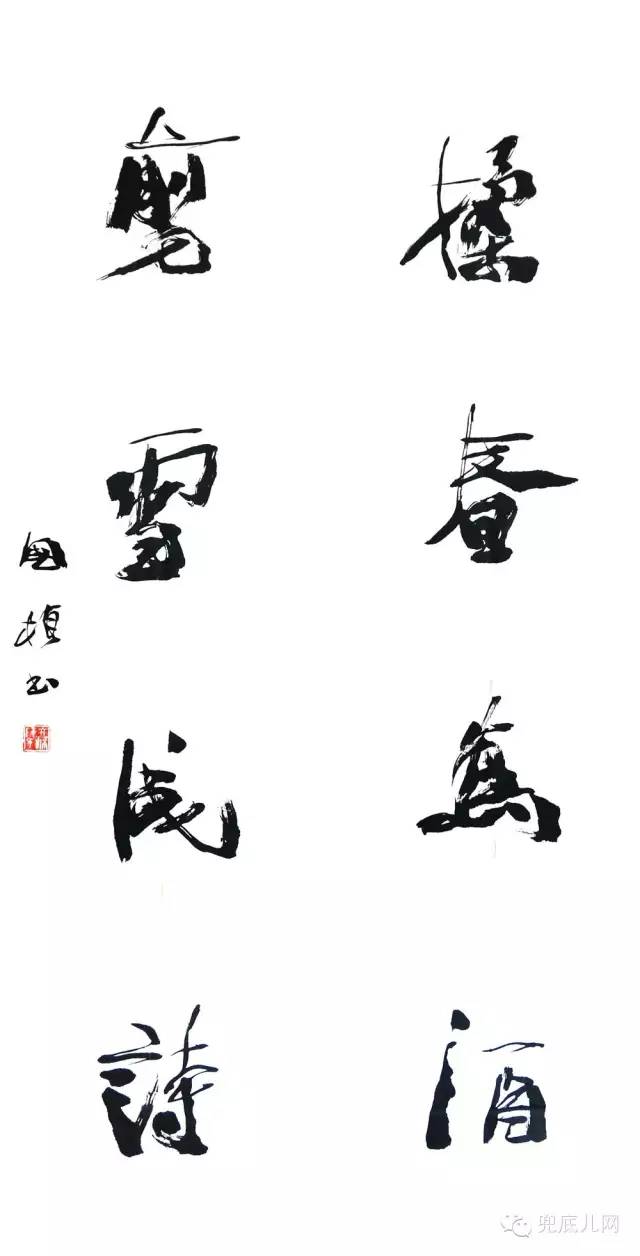 揉春為酒
剪雪成詩
國楨书
兜底儿网